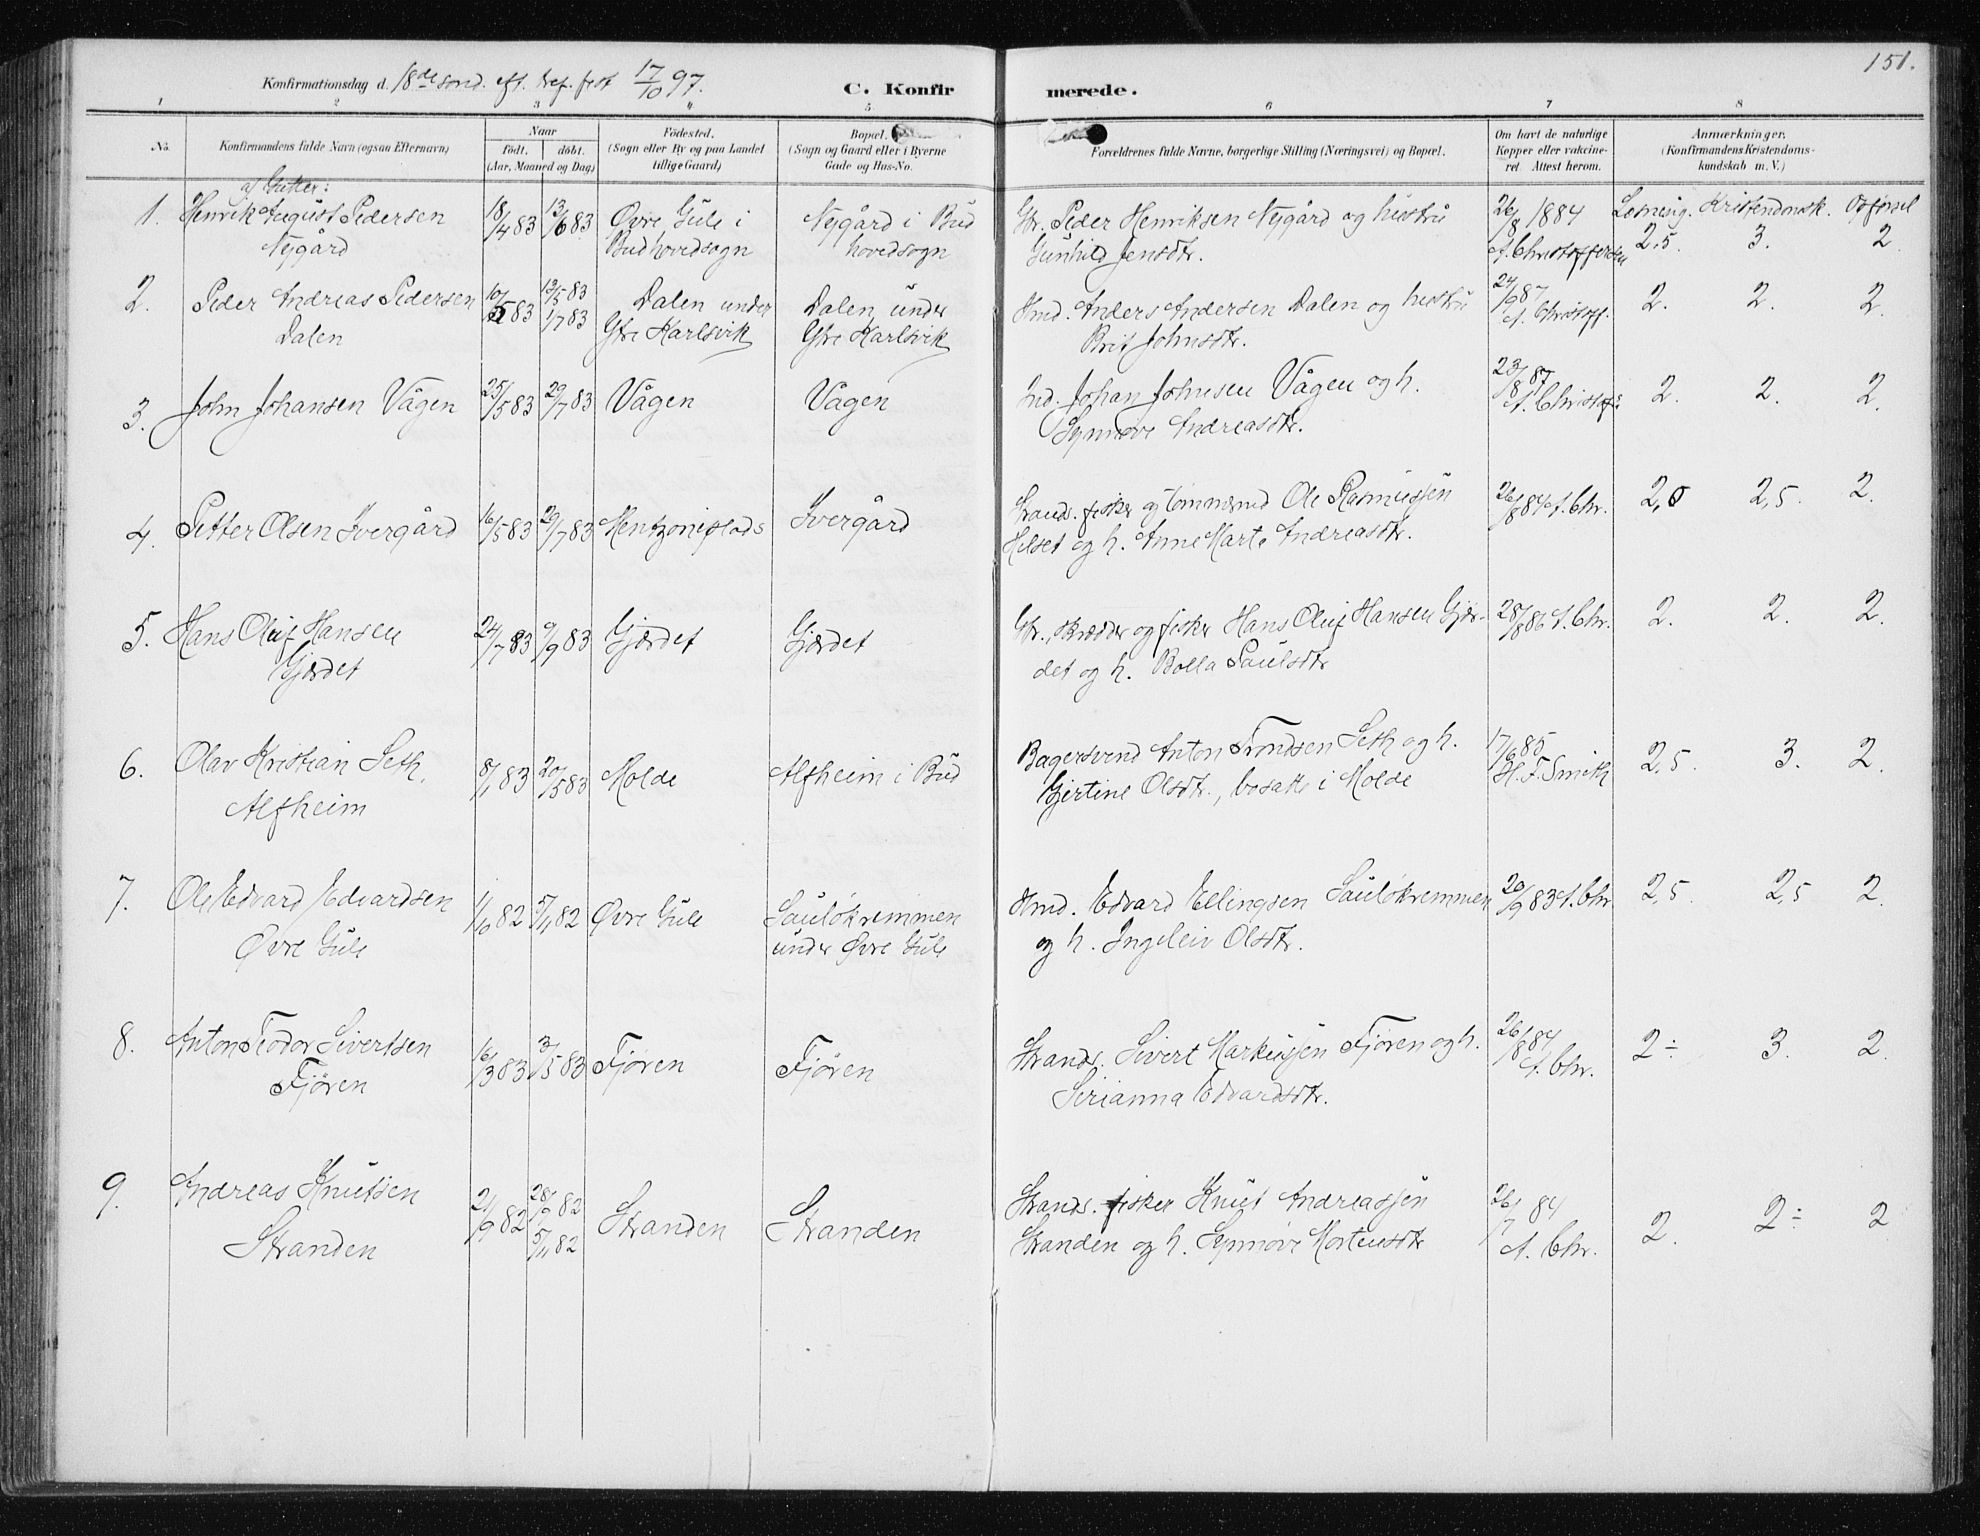 151.
Konfirmationsdag d. 18de sønd. eft. tref. fest 17/10 97.
C. Konfirmerede.
1 2 3 4 5 6 7 8
No. Konfirmandens fulde Navn (ogsaa Efternavn) Naar Födested. Bopæl. Forældrenes fulde Navne, borgerlige Stilling (Næringsvei) og Bopæl. Om havt de naturlige Anmærkninger.
födt. döbt. (Sogn eller By og paa Landet (Sogn og Gaard eller i Byerne Kopper eller vakcine- (Konfirmandens Kristendoms-
(Aar, Maaned og Dag) tillige Gaard) Gade og Hus-No. ret. Attest herom. kundskab m. V.)
af Gutter:
1. Henrik August Pedersen 18/4 83 13/6 83 Øvre Gule i Nygård i Bud Gbr. Peder Henriksen Nygård og hustru 26/8 1884 Læsning. Kristendomsk. Opførsel
Nygård Bud hovedsogn hovedsogn Gunhild Jensdtr. A. Christoffersen 2,5. 3. 2.
2. Peder Andreas Pedersen 10/5 83 13/5 83 Dalen under Dalen under Hmd. Anders Andersen Dalen og hustru 24/9 87 2. 2. 2.
Dalen 1/7 83 Ytre Karlsvik Ytre Karlsvik Brit Johnsdtr. A. Christoff.
3. John Johansen Vågen 25/5 83 29/7 83 Vågen Vågen Ind. Johan Johnsen Vågen og h. 23/8 87 2. 2. 2.
Synnøve Andreasdtr. A. Christoff:
4. Petter Olsen Ivergård 16/5 83 29/7 83 Mentzoniplads Ivergård Strands. fisker og tømmermd Ole Rasmussen 26/8 84 A. Chr. 2,5 2,5. 2.
Helset og h. Anne Marte Andreasdtr.
5. Hans Oluf Hansen 24/7 83 9/9 83 Gjærdet Gjærdet Gbr., skrædder og fisker Hans Oluf Hansen Gjær- 28/8 86 A. Chr. 2. 2. 2.
Gjærdet det og h. Bolla Paulsdtr
6. Olav Kristian Seth, 8/1 83 20/5 83 Molde Alfheim i Bud Bagersvend Anton Trondsen Seth og h. 17/6 85 2,5. 3. 2.
Alfheim Gjertine Olsdtr., bosatte i Molde H. F. Smith
7. Ole Edvard Edvardsen 1/10 82 5/11 82 Øvre Gule Sauløkremmen Hmd. Edvard Ellingsen Sauløkremmen 20/9 83 A. Chr. 2,5. 2,5 2.
Øvre Gule under Øvre Gule og h. Ingeleiv Olsdtr.
8. Anton Teodor Sivertsen 16/3 83 3/5 83 Fjøren Fjøren Strands. Sivert Markussen Fjøren og h. 26/8 84 2÷ 3. 2.
Fjøren Serianna Edvardsdtr. A. Chr.
9. Andreas Knutsen 21/9 82 28/9 82 Stranden Stranden Strands. fisker Knut Andreassen 26/7 84 2. 2÷ 2
Stranden 5/11 82 Stranden og h. Synnøve Mortensdtr A. Chr.